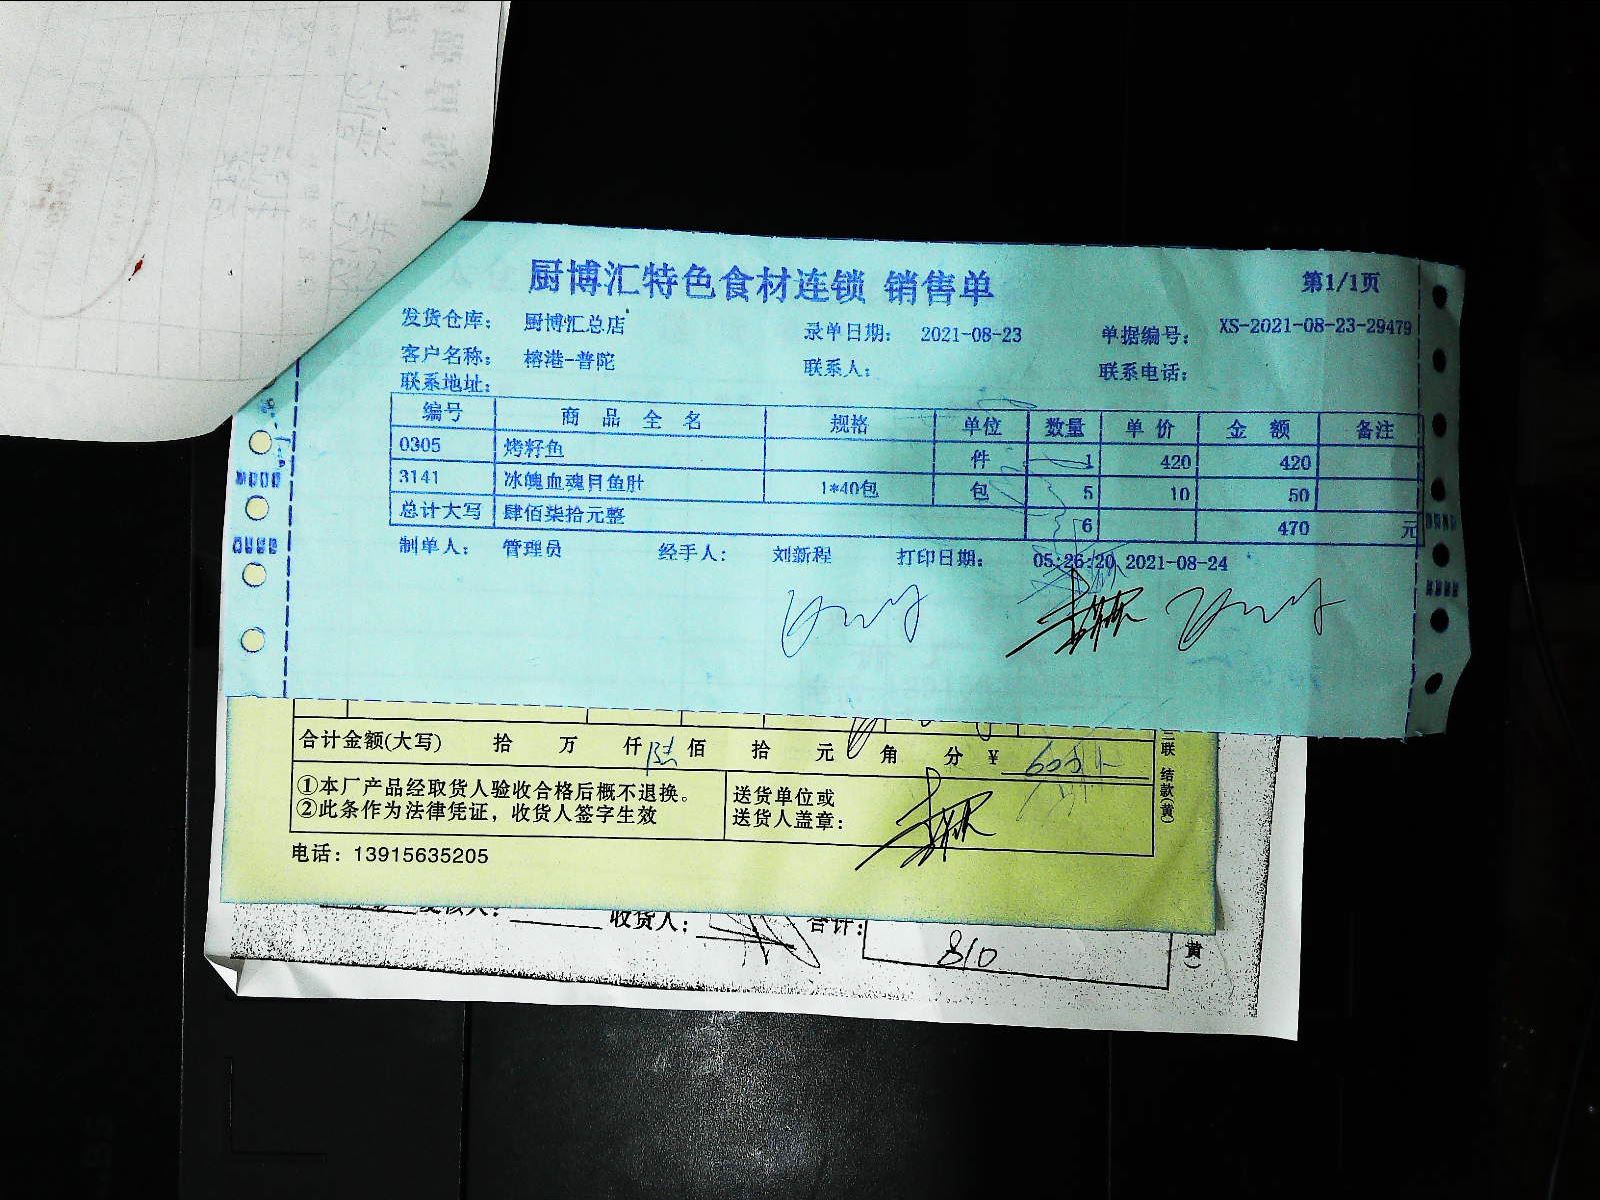 厨博汇特色食材连锁 销售单 第1/1页
发货仓库: 厨博汇总店 录单日期: 2021-08-23 单据编号: XS-2021-08-23-29479
客户名称: 榕港-普陀 联系人: 联系电话:
联系地址:
编号 商品全名 规格 单位 数量 单价 金额 备注
0305 烤籽鱼 件 1 420 420
3141 冰魄血魂目鱼肚 1*40包 包 5 10 50
总计大写 肆佰柒拾元整 6 470 元
制单人: 管理员 经手人: 刘新程 打印日期: 05:26:20 2021-08-24
合计金额(大写) 拾 万 仟 陆 佰 拾 元 角 分 ¥
三联 结款(黄)
①本厂产品经取货人验收合格后概不退换。
②此条作为法律凭证，收货人签字生效
送货单位或
送货人盖章:
电话: 13915635205
收货人: 合计: 810
黄)